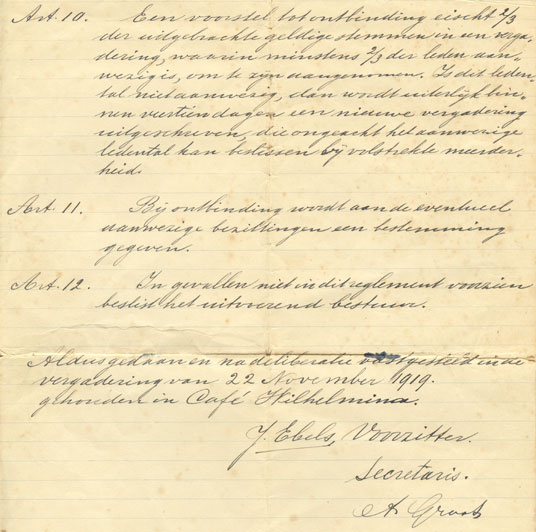 Art. 10. Een voorstel tot ontbinding eischt 2/3
der uitgebrachte geldige stemmen in een verga-
dering, waarin minstens 2/3 der leden aan-
wezig is, om te zijn aangenomen. Is dit leden-
tal niet aanwezig, dan wordt uiterlijk bin-
nen veertien dagen een nieuwe vergadering
uitgeschreven, die ongeacht het aanwezige
ledental kan beslissen bij volstrekte meerder-
heid.
Art. 11. Bij ontbinding wordt aan de eventueel
aanwezige bezittingen een bestemming
gegeven.
Art. 12. In gevallen niet in dit reglement voorzien
beslist het uitvoerend bestuur.
Aldus gedaan en na deliberatie vastgesteld in de
vergadering van 22 November 1919.
gehouden in Café Wilhelmina.
J. Ebels, Voorzitter.
Secretaris.
A. Groot